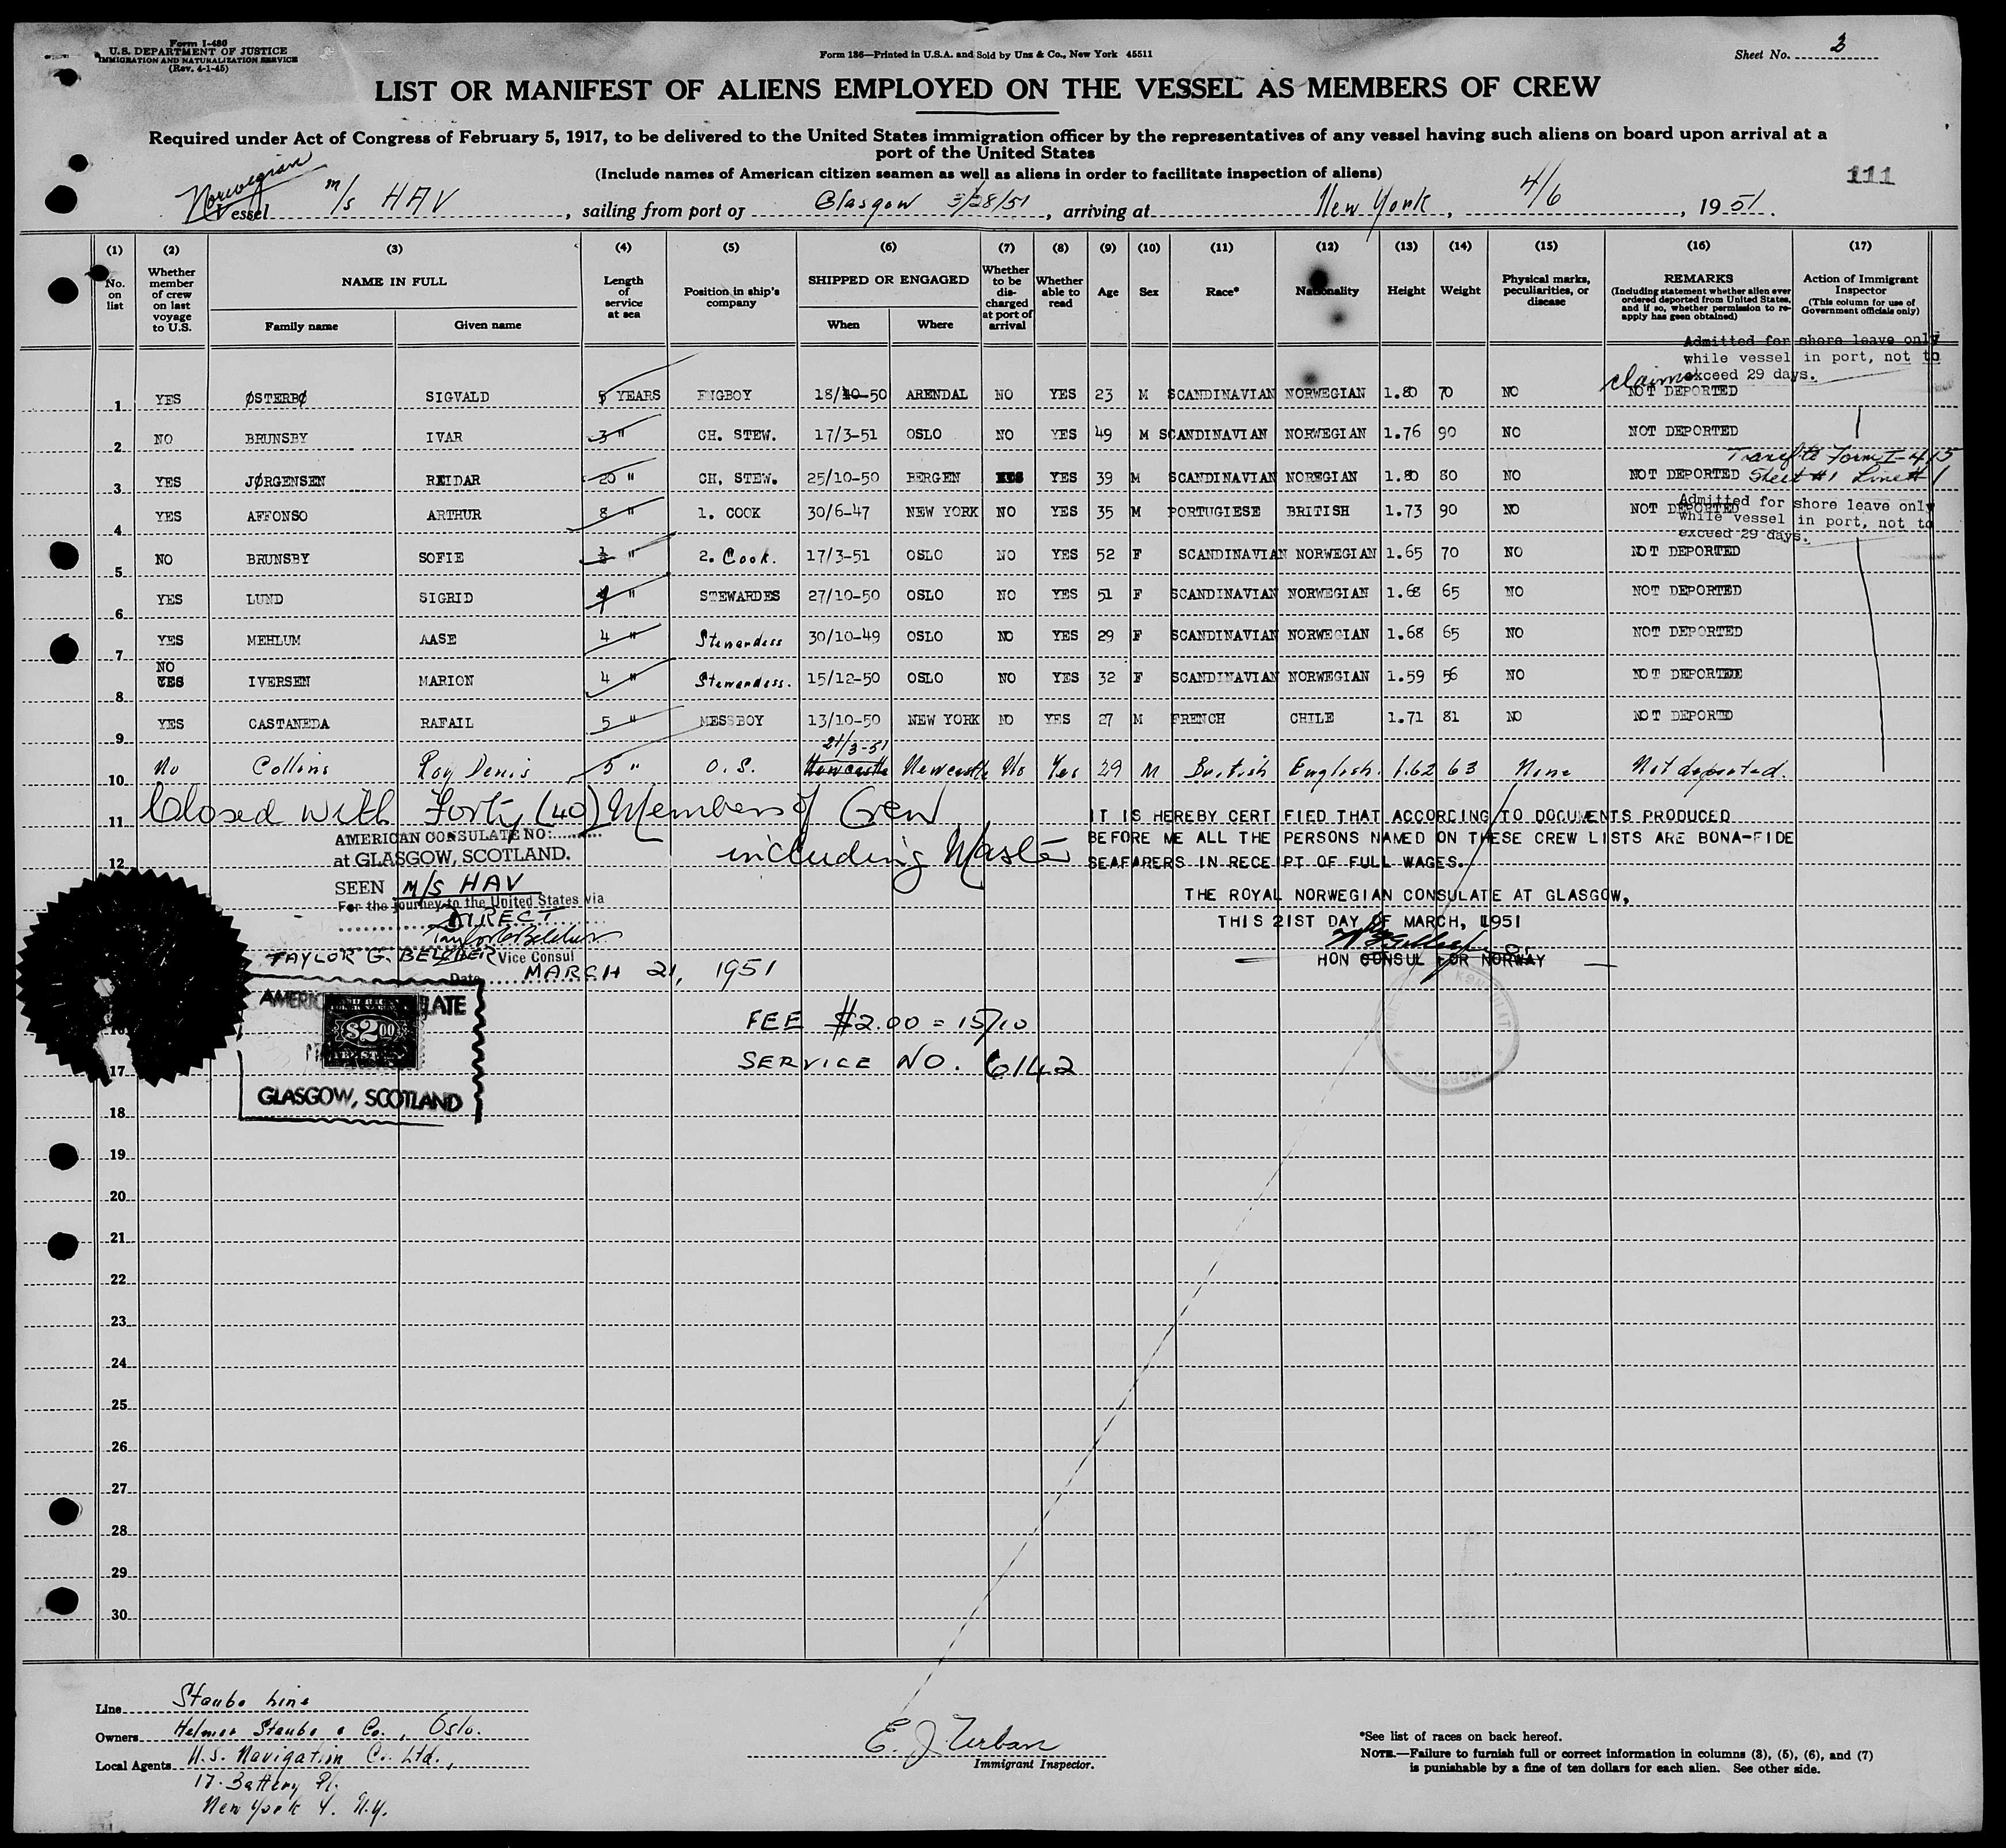 Form I-480
U.S. DEPARTMENT OF JUSTICE
IMMIGRATION AND NATURALIZATION SERVICE
(Rev. 4-1-45)
Form 136—Printed in U.S.A. and Sold by Unz & Co., New York 45511
Sheet No. 3
LIST OR MANIFEST OF ALIENS EMPLOYED ON THE VESSEL AS MEMBERS OF CREW
Required under Act of Congress of February 5, 1917, to be delivered to the United States immigration officer by the representatives of any vessel having such aliens on board upon arrival at a
port of the United States
(Include names of American citizen seamen as well as aliens in order to facilitate inspection of aliens)
111
Norwegian
Vessel m/s HAV, sailing from port of Glasgow 3/28/51, arriving at New York, 4/6, 1951.
(1) (2) (3) (4) (5) (6) (7) (8) (9) (10) (11) (12) (13) (14) (15) (16) (17)
No. on list
Whether member of crew on last voyage to U.S.
NAME IN FULL
Family name Given name
Length of service at sea
Position in ship's company
SHIPPED OR ENGAGED
When Where
Whether to be discharged at port of arrival
Whether able to read
Age
Sex
Race*
Nationality
Height
Weight
Physical marks, peculiarities, or disease
REMARKS
(Including statement whether alien ever ordered deported from United States, and if so, whether permission to re-apply has geen obtained)
Action of Immigrant Inspector
(This column for use of Government officials only)
Admitted for shore leave only
while vessel in port, not to
exceed 29 days.
claims
1 YES ØSTERBØ SIGVALD 5 YEARS ENGBOY 18/10-50 ARENDAL NO YES 23 M SCANDINAVIAN NORWEGIAN 1.80 70 NO NOT DEPORTED
2 NO BRUNSBY IVAR 3 " CH. STEW. 17/3-51 OSLO NO YES 49 M SCANDINAVIAN NORWEGIAN 1.76 90 NO NOT DEPORTED
3 YES JØRGENSEN REIDAR 20 " CH. STEW. 25/10-50 BERGEN YES YES 39 M SCANDINAVIAN NOREGIAN 1.80 80 NO NOT DEPORTED
Form I-415
Sheet #1 Line # 1
4 YES AFFONSO ARTHUR 8 " 1. COOK 30/6-47 NEW YORK NO YES 35 M PORTUGIESE BRITISH 1.73 90 NO NOT DEPORTED
Admitted for shore leave only
while vessel in port, not to
exceed 29 days.
5 NO BRUNSBY SOFIE " 2. Cook. 17/3-51 OSLO NO YES 52 F SCANDINAVIAN NORWEGIAN 1.65 70 NO NOT DEPORTED
6 YES LUND SIGRID " STEWARDES 27/10-50 OSLO NO YES 51 F SCANDINAVIAN NORWEGIAN 1.68 65 NO NOT DEPORTED
7 YES MEHLUM AASE 4 " Stewardess 30/10-49 OSLO NO YES 29 F SCANDINAVIAN NORWEGIAN 1.68 65 NO NOT DEPORTED
NO
8 YES IVERSEN MARION 4 " Stewardess. 15/12-50 OSLO NO YES 32 F SCANDINAVIAN NORWEGIAN 1.59 56 NO NOT DEPORTEE
9 YES CASTANEDA RAFAIL 5 " MESSBOY 13/10-50 NEW YORK NO YES 27 M FRENCH CHILE 1.71 81 NO NOT DEPORTD
21/3-51
10 No Collins Roy Denis 5 " O.S. Newcastle Newcastle No Yes 29 M British English. 1.62 63 None Not deported.
11 Closed with Forty (40) Members of Crew
including Master
12
AMERICAN CONSULATE NO:
at GLASGOW, SCOTLAND.
SEEN M/S HAV
For the journey to the United States via
DIRECT
Taylor G Belcher
TAYLOR G. BELCHER Vice Consul
Date MARCH 21, 1951
IT IS HEREBY CERTIFIED THAT ACCORCING TO DOCUMENTS PRODUCED
BEFORE ME ALL THE PERSONS NAMED ON THESE CREW LISTS ARE BONA-FIDE
SEAFARERS IN RECEIPT OF FULL WAGES.
THE ROYAL NORWEGIAN CONSULATE AT GLASGOW,
THIS 21ST DAY OF MARCH, 1951
HON CONSUL FOR NORWAY
AMERICAN CONSULATE
$2.00
GLASGOW, SCOTLAND
FEE $2.00 = 15/10
SERVICE NO. 6142
17
18
19
20
21
22
23
24
25
26
27
28
29
30
Line Staubo Line
Owners Helmer Staubo & Co., Oslo.
Local Agents U.S. Navigation Co. Ltd.,
17 Battery Pl.
New York 4. N.Y.
E. J. Urban
Immigrant Inspector.
*See list of races on back hereof.
NOTE.—Failure to furnish full or correct information in columns (3), (5), (6), and (7)
is punishable by a fine of ten dollars for each alien. See other side.